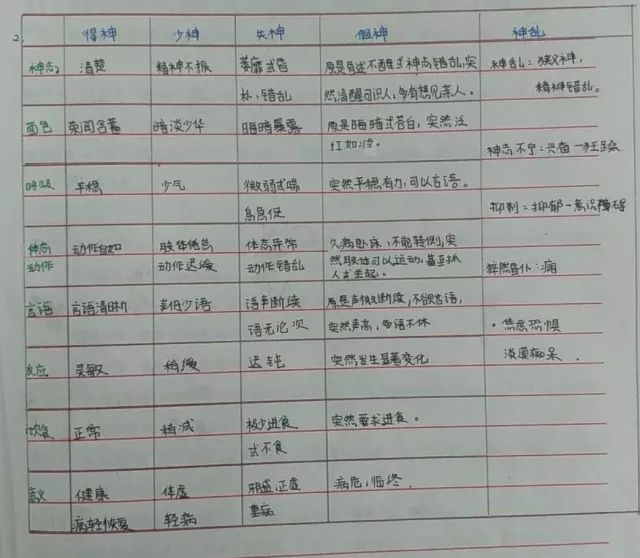 2.
得神 少神 失神 假神 神乱
神志 清楚 精神不振 萎靡或昏 原是昏迷不醒或神志错乱,突 神乱:狭义神,
朴,错乱 然清醒可识人,多有想见亲人。 精神错乱。
面色 荣润含蓄 暗淡少华 晦暗暴露 原是晦暗或苍白,突然泛
红如妆。 神志不宁:兴奋—狂躁
呼吸 平稳 少气 微弱或喘 突然平稳有力,可以言语。
息急促 抑制:抑郁—意识障碍
体态 动作自如 肢体倦怠 体态异常 久病卧床,不能转侧,突
动作 动作迟缓 动作错乱 然肢体可以运动,甚至扒 猝然昏仆:痫
人或坐起。
言语 言语清晰 声低少语 语声断续 原是声微断续,不欲言语,
语无论次 突然声高,多语不休 · 焦虑恐惧
反应 灵敏 稍缓 迟钝 突然发生显著变化 淡漠痴呆.
饮食 正常 稍减 极少进食 突然要求进食。
或不食
意义 健康 体虚 邪盛,正虚 病危,临终.
病轻恢复 轻病 重病